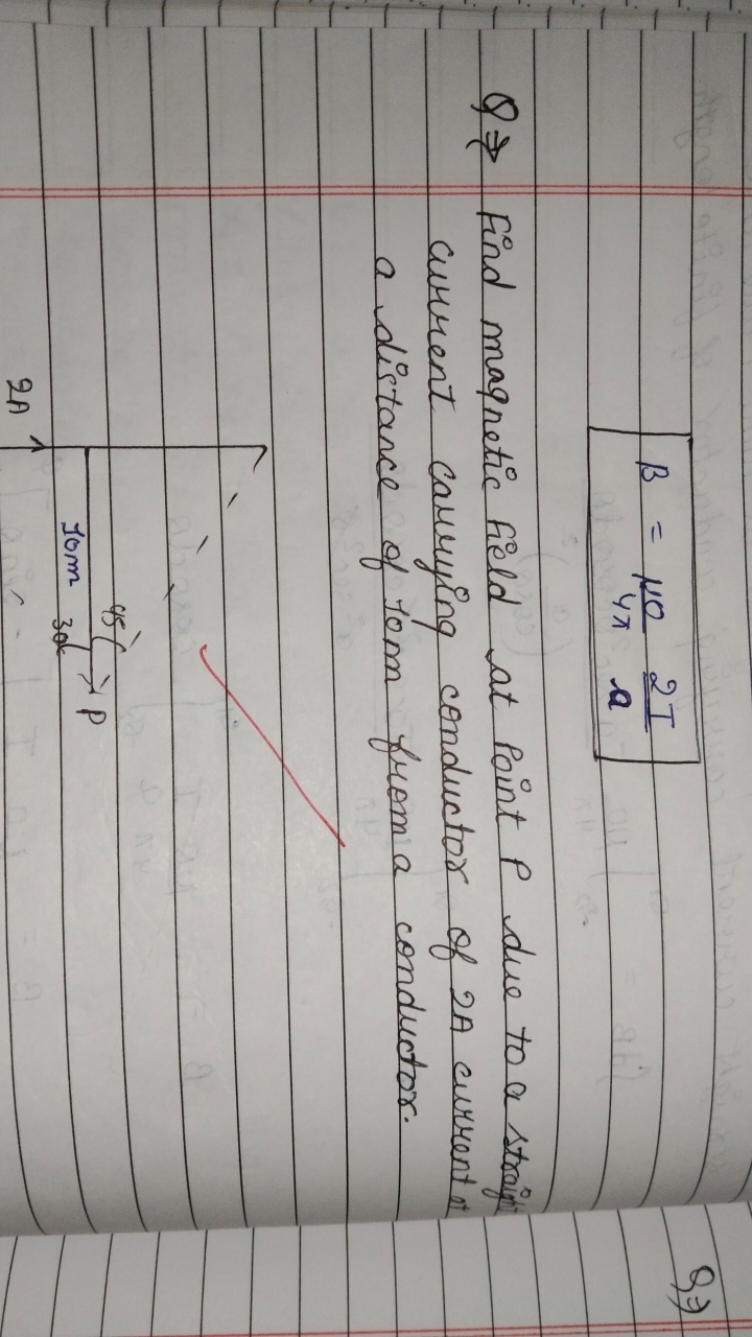 B = μ0 2I
4π a
Q⇒ find magnetic field at Point P due to a straight
current carrying conductor of 2A current at
a distance of 10m from a conductor.
45
P
30
10m
2A
Q⇒